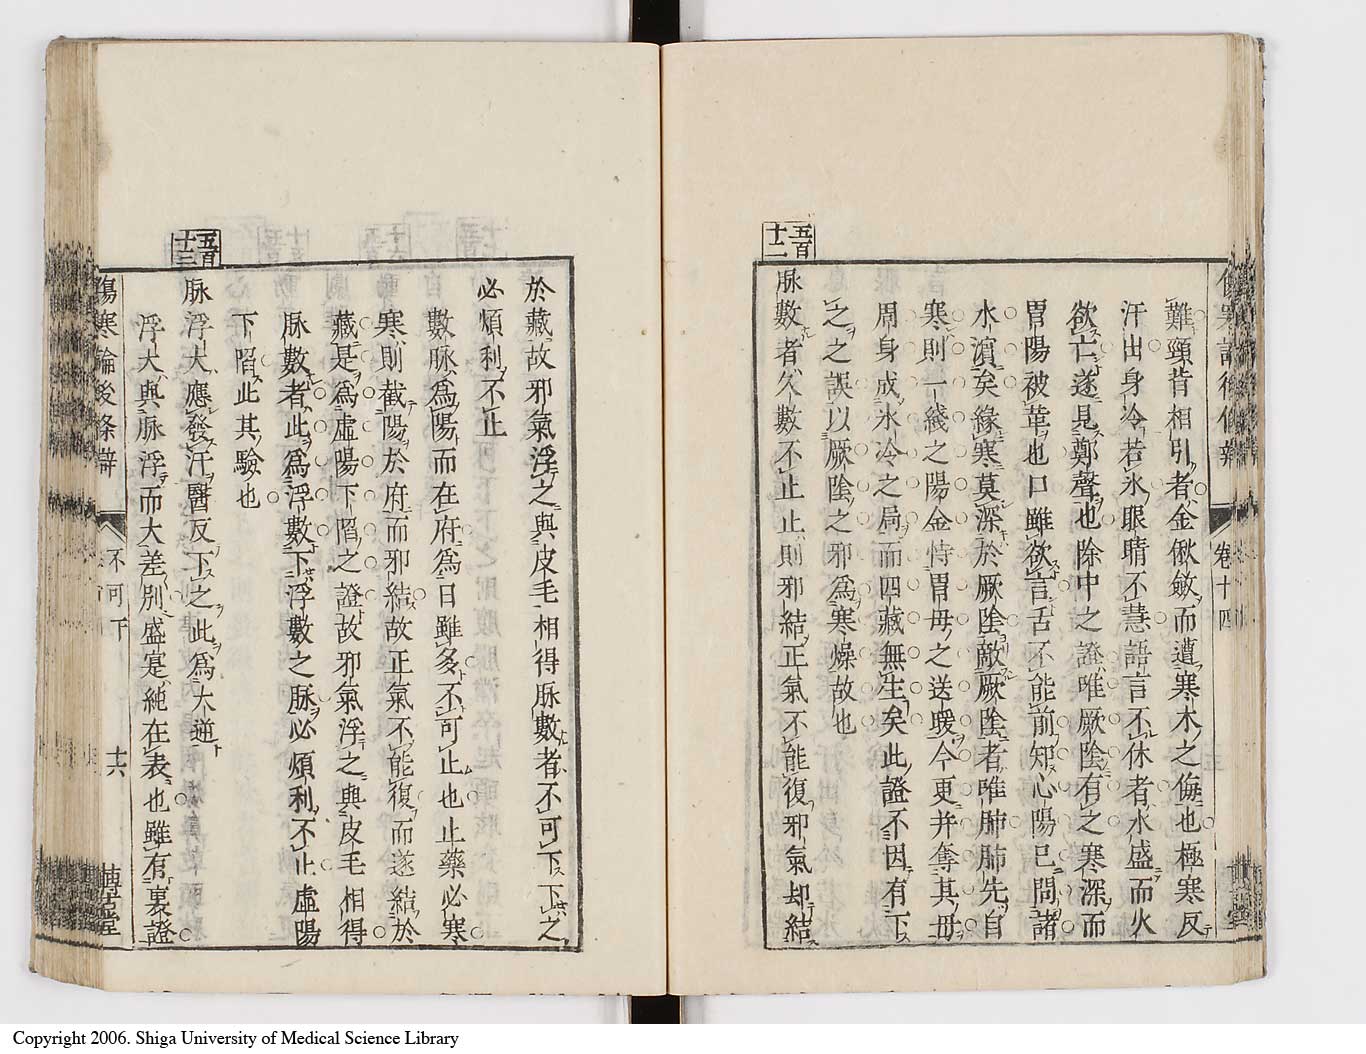 傷寒論後條辨
卷十四
難頸背相引者金僦斂而遭寒木之侮也極寒反
汗出身冷若氷眼睛不慧語言不休者水盛而火
欲亡遂見鄭聲也除中之證唯厥陰有之寒深而
胃陽被革也口雖欲言舌不能前知心陽已問諸
水濵矣緣寒莫深於厥陰敵厥陰者唯肺肺先自
寒則一綫之陽金恃胃母之送暖今更并奪其母
周身成氷冷之局而四藏無生矣此證不因有下
之之誤以厥陰之邪爲寒燥故也
五百十二
脉數者久數不止止則邪結正氣不能復邪氣却結
於藏故邪氣浮之與皮毛相得脉數者不可下下之
必煩利不止
數脉爲陽而在府爲日雖多不可止也止藥必寒
寒則截陽於府而邪結故正氣不能復而遂結於
藏是爲虛陽下陷之證故邪氣浮之與皮毛相得
脉數者此爲浮數下浮數之脉必煩利不止虛陽
下陷此其驗也
五百十三
脉浮大應發汗醫反下之此爲大逆
浮大與脉浮而大差別盛寔純在表也雖有裏證
傷寒論後條辨
不可下
十六
Copyright 2006. Shiga University of Medical Science Library